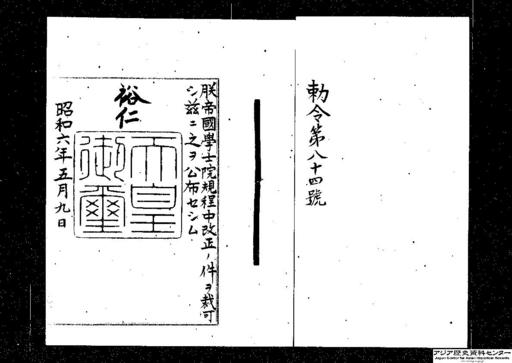 勅令第八十四號
朕帝國學士院規程中改正ノ件ヲ裁可
シ茲ニ之ヲ公布セシム
裕仁
天皇
御璽
昭和六年五月九日
アジア歴史資料センター
Japan Center for Asian Historical Records